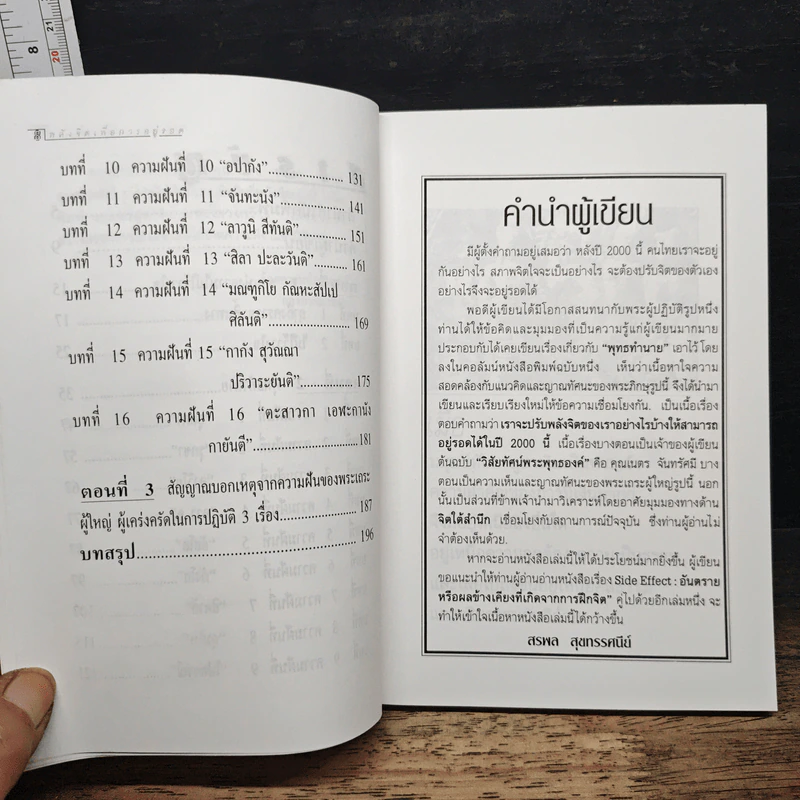 8
20
21
พลังจิตเพื่อการอยู่รอด
บทที่ 10 ความฝันที่ 10 “อปากัง”........................131
บทที่ 11 ความฝันที่ 11 “จันทะนัง”........................141
บทที่ 12 ความฝันที่ 12 “ลาวูนิ สีทันติ”........................151
บทที่ 13 ความฝันที่ 13 “สิลา ปะละวันติ”........................161
บทที่ 14 ความฝันที่ 14 “มณฑูกิโย กัณหะสัปเป
ศิลันติ”........................169
บทที่ 15 ความฝันที่ 15 “กากัง สุวัณณา
ปริวาระยันติ”........................175
บทที่ 16 ความฝันที่ 16 “ตะสาวกา เอฬะกานัง
กายันตี”........................181
ตอนที่ 3 สัญญาณบอกเหตุจากความฝันของพระเถระ
ผู้ใหญ่ ผู้เคร่งครัดในการปฏิบัติ 3 เรื่อง........................187
บทสรุป........................196
คำนำผู้เขียน
มีผู้ตั้งคำถามอยู่เสมอว่า หลังปี 2000 นี้ คนไทยเราจะอยู่
กันอย่างไร สภาพจิตใจจะเป็นอย่างไร จะต้องปรับจิตของตัวเอง
อย่างไรจึงจะอยู่รอดได้
พอดีผู้เขียนได้มีโอกาสสนทนากับพระผู้ปฏิบัติรูปหนึ่ง
ท่านได้ให้ข้อคิดและมุมมองที่เป็นความรู้แก่ผู้เขียนมากมาย
ประกอบกับได้เคยเขียนเรื่องเกี่ยวกับ “พุทธทำนาย” เอาไว้ โดย
ลงในคอลัมน์หนังสือพิมพ์ฉบับหนึ่ง เห็นว่าเนื้อหาใจความ
สอดคล้องกับแนวคิดและญาณทัศนะของพระภิกษุรูปนี้ จึงได้นำมา
เขียนและเรียบเรียงใหม่ให้ข้อความเชื่อมโยงกัน เป็นเนื้อเรื่อง
ตอบคำถามว่า เราจะปรับพลังจิตของเราอย่างไรบ้างให้สามารถ
อยู่รอดได้ในปี 2000 นี้ เนื้อเรื่องบางตอนเป็นเจ้าของผู้เขียน
ต้นฉบับ “วิสัยทัศน์พระพุทธองค์” คือ คุณเนตร จันทรัศมี บาง
ตอนเป็นความเห็นและญาณทัศนะของพระเถระผู้ใหญ่รูปนี้ นอก
นั้นเป็นส่วนที่ข้าพเจ้านำมาวิเคราะห์โดยอาศัยมุมมองทางด้าน
จิตใต้สำนึก เชื่อมโยงกับสถานการณ์ปัจจุบัน ซึ่งท่านผู้อ่านไม่
จำต้องเห็นด้วย
หากจะอ่านหนังสือเล่มนี้ให้ได้ประโยชน์มากยิ่งขึ้น ผู้เขียน
ขอแนะนำให้ท่านผู้อ่านอ่านหนังสือเรื่อง Side Effect : อันตราย
หรือผลข้างเคียงที่เกิดจากการฝึกจิต” คู่ไปด้วยอีกเล่มหนึ่ง จะ
ทำให้เข้าใจเนื้อหาหนังสือเล่มนี้ได้กว้างขึ้น
สรพล สุขทรรศนีย์